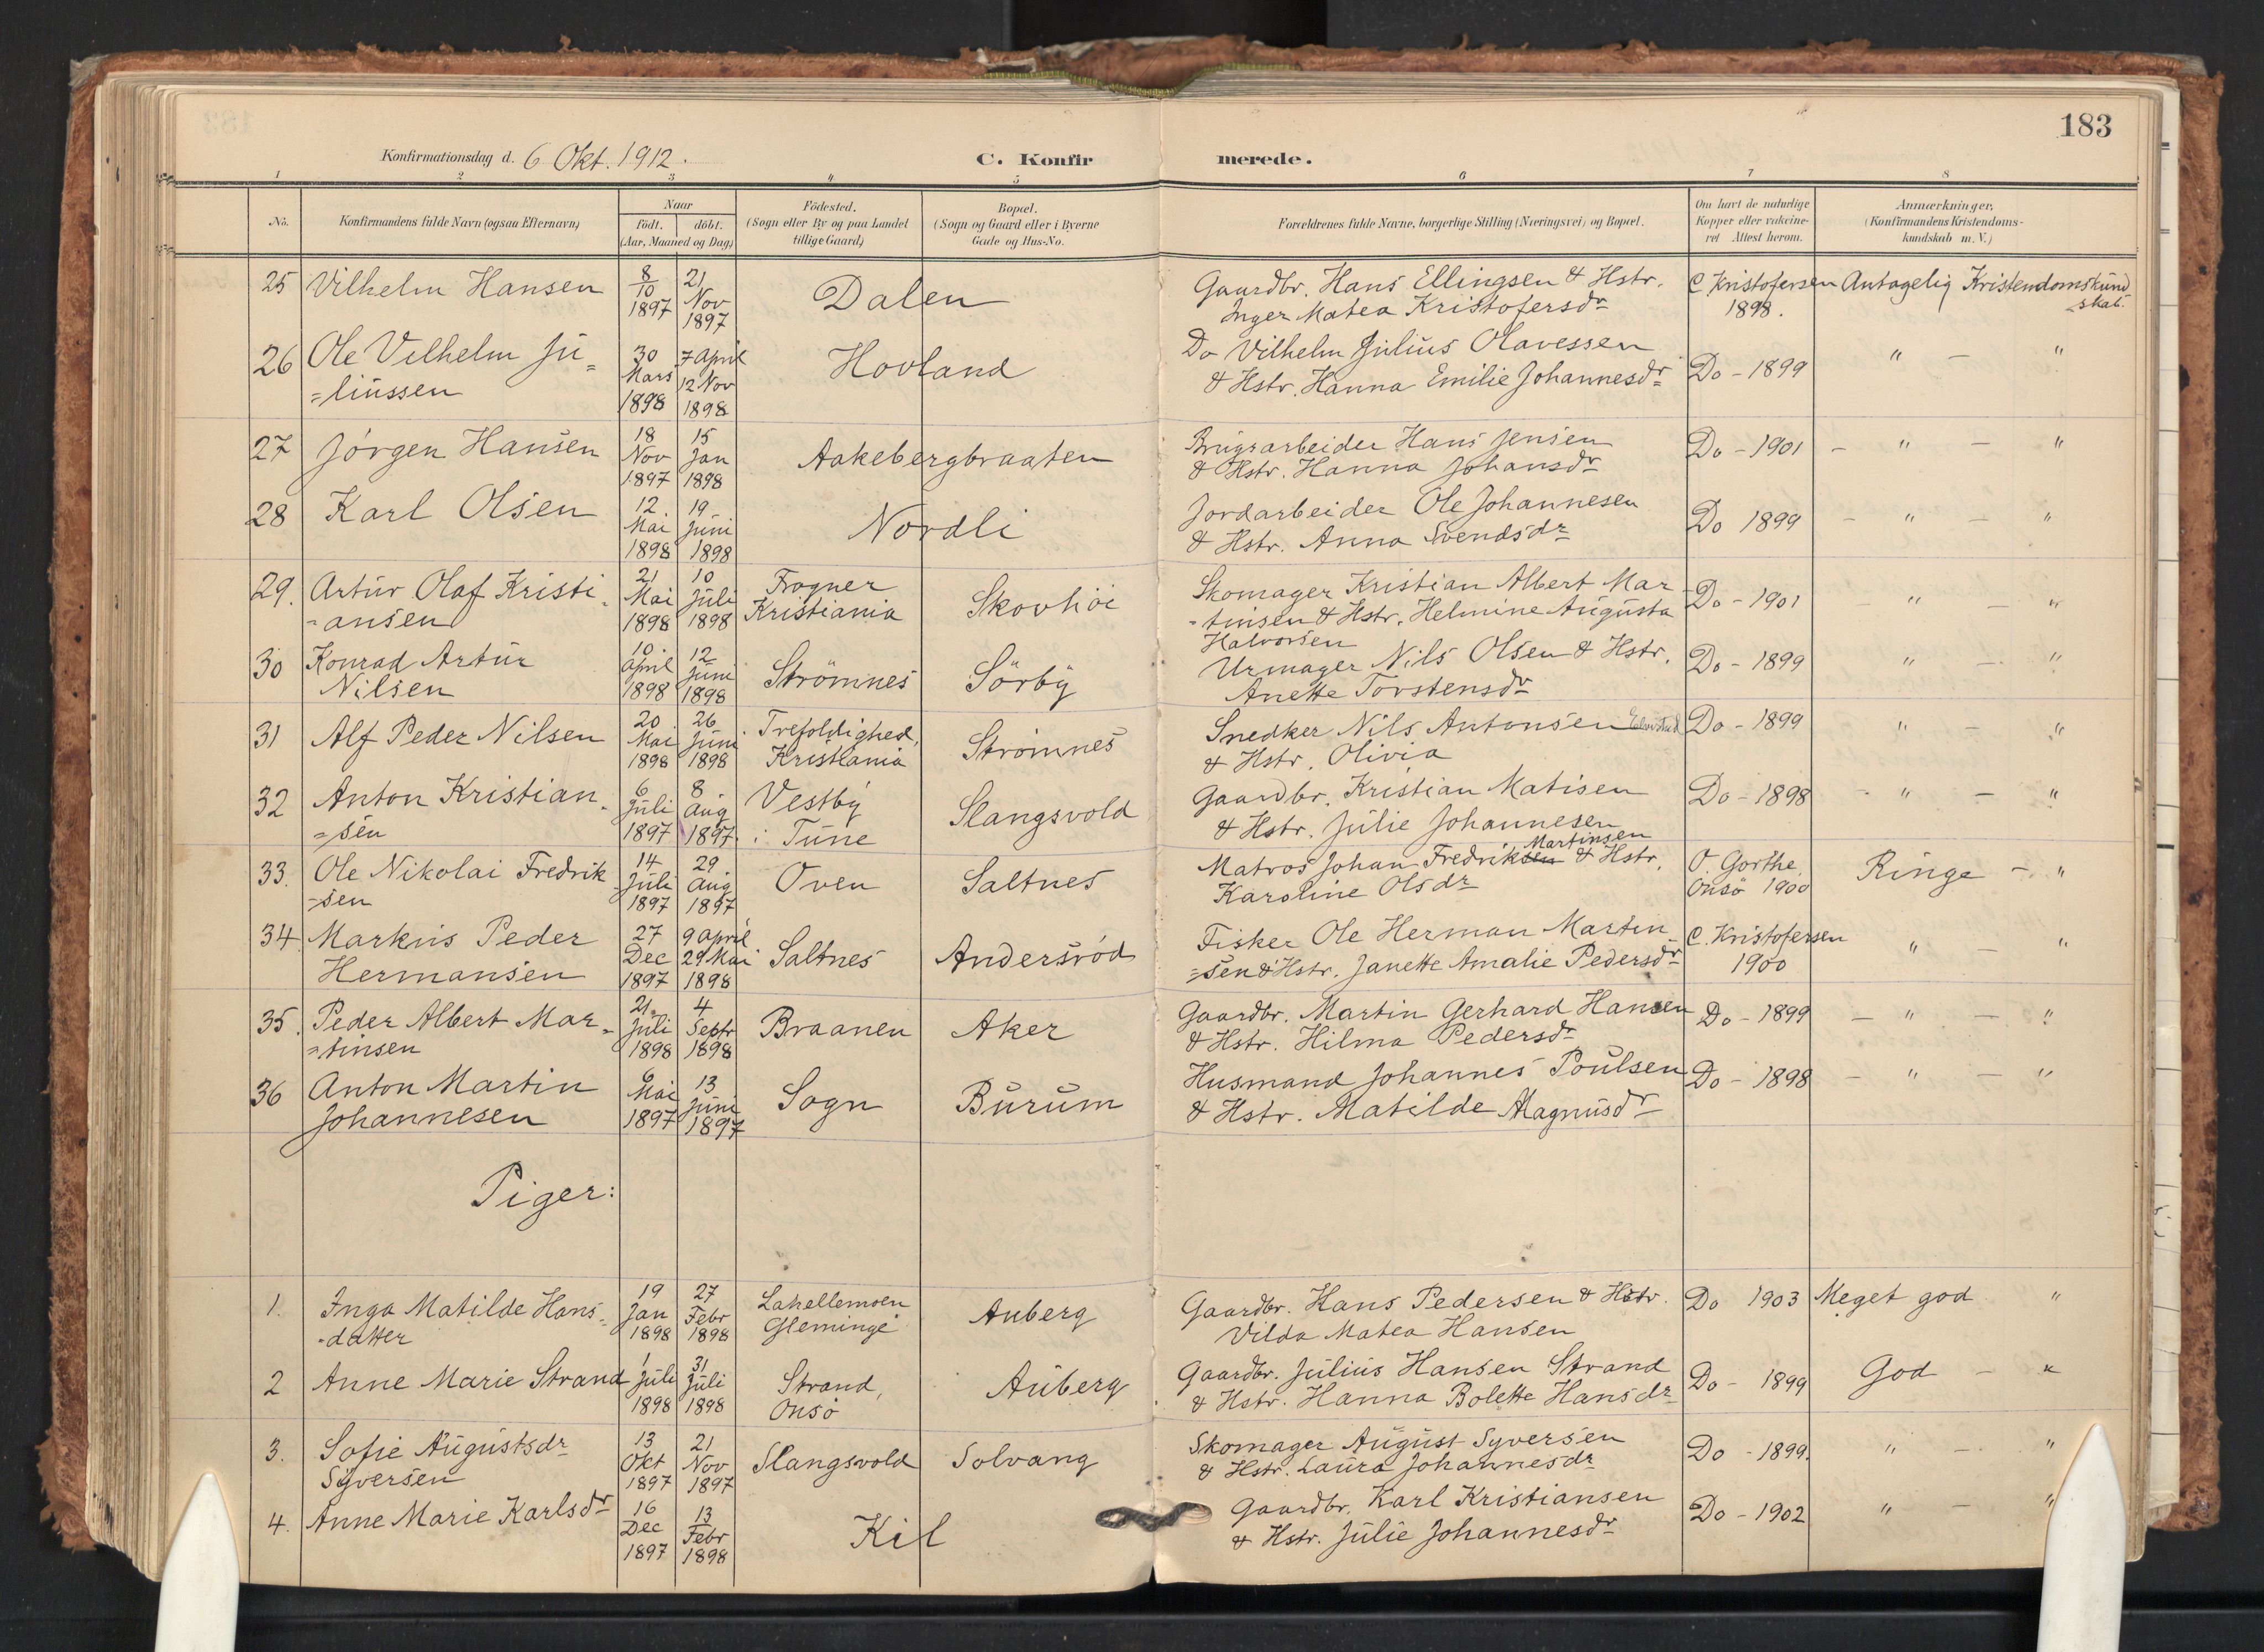 183
Konfirmationsdag d. 6 Okt. 1912.
C. Konfirmerede.
1 2 3 4 5 6 7 8
No.
Konfirmandens fulde Navn (ogsaa Efternavn)
Naar
födt. döbt.
(Aar, Maaned og Dag)
Födested.
(Sogn eller By og paa Landet
tillige Gaard)
Bopæl.
(Sogn og Gaard eller i Byerne
Gade og Hus-No.
Forældrenes fulde Navne, borgerlige Stilling (Næringsvei) og Bopæl.
Om havt de naturlige
Kopper eller vakcine-
ret Attest herom.
Anmærkninger,
(Konfirmandens Kristendoms-
kundskab m. V.)
25 Vilhelm Hansen
8/10 1897
21 Nov 1897
Dalen
Gaardbr. Hans Ellingsen & Hstr.
Inger Matea Kristofersdr
C. Kristofersen
1898.
Antagelig Kristendomskund
skab.
26 Ole Vilhelm Ju=
=liussen
30 Mars 1898
7 April
12 Nov 1898
Hovland
Do Vilhelm Julius Olavessen
& Hstr. Hanna Emilie Johannesdr
Do - 1899
" - "
27 Jörgen Hansen
18 Nov 1897
15 Jan 1898
Aakebergbraaten
Brugsarbeider Hans Jensen
& Hstr. Hanna Johansdr
Do - 1901
- " - "
28 Karl Olsen
12 Mai 1898
19 Juni 1898
Nordli
Jordarbeider Ole Johannesen
& Hstr. Anna Svendsdr
Do 1899
- " - "
29. Artur Olaf Kristi
=ansen
21 Mai 1898
10 Juli 1898
Frogner
Kristiania
Skovhöi
Skomager Kristian Albert Mar
=tinsen & Hstr. Helmine Augusta
Halvorsen
Do - 1901
" - "
30 Konrad Artur
Nilsen
10 April 1898
12 Juni 1898
Strömnes
Sörby
Urmager Nils Olsen & Hstr.
Anette Torstensdr
Do - 1899
" - "
31 Alf Peder Nilsen
20 Mai 1898
26 Juni 1898
Trefoldighed,
Kristiania
Strömnes
Snedker Nils Antonsen
& Hstr. Olivia
Do - 1899
" - "
32 Anton Kristian
=sen
6 Juli 1897
8 Aug 1897.
Vestby
i Tune
Slangsvold
Gaardbr. Kristian Matisen
& Hstr. Julie Johannesen
Do - 1898
- " - "
33. Ole Nikolai Fredrik
-sen
14 Juli 1897
29 Aug 1897
Oven
Saltnes
Martinsen
Matros Johan Fredriksen & Hstr.
Karoline Olsdr
O. Gorthe,
Onsö 1900
Ringe - "
34 Markus Peder
Hermansen
27 Dec 1897
9 April
29 Mai 1898
Saltnes
Andersröd
Fisker Ole Herman Martin
=sen & Hstr. Janette Amalie Pedersdr
C. Kristofersen
1900
" - "
35. Peder Albert Mar=
=tinsen
21 Juli 1898
4 Septr 1898
Braanen
Aker
Gaardbr. Martin Gerhard Hansen
& Hstr. Hilma Pedersdr
Do - 1899
- " - "
36 Anton Martin
Johannesen
6 Mai 1897
13 Juni 1897
Sogn
Burum
Husmand Johannes Poulsen
& Hstr. Matilde Magnusdr
Do - 1898
- " - "
Piger:
1. Inga Matilde Hans=
-datter
19 Jan 1898
27 Febr 1898
Lahellemoen
Gleminge
Auberg
Gaardbr. Hans Pedersen & Hstr.
Vilda Matea Hansen
Do 1903
Meget god "
2 Anne Marie Strand
1 Juli 1898
31 Juli 1898
Strand,
Onsö
Auberg
Gaardbr. Julius Hansen Strand
& Hstr. Hanna Bolette Hansdr
Do - 1899
God - "
3. Sofie Augustsdr
Syversen
13 Okt 1897
21 Nov 1897
Slangsvold
Solvang
Skomager August Syversen
& Hstr. Laura Johannesdr
Do - 1899.
" - "
4. Anne Marie Karlsdr
16 Dec 1897
13 Febr 1898
Kil
Gaardbr. Karl Kristiansen
& Hstr. Julie Johannesdr
Do - 1902
" - "